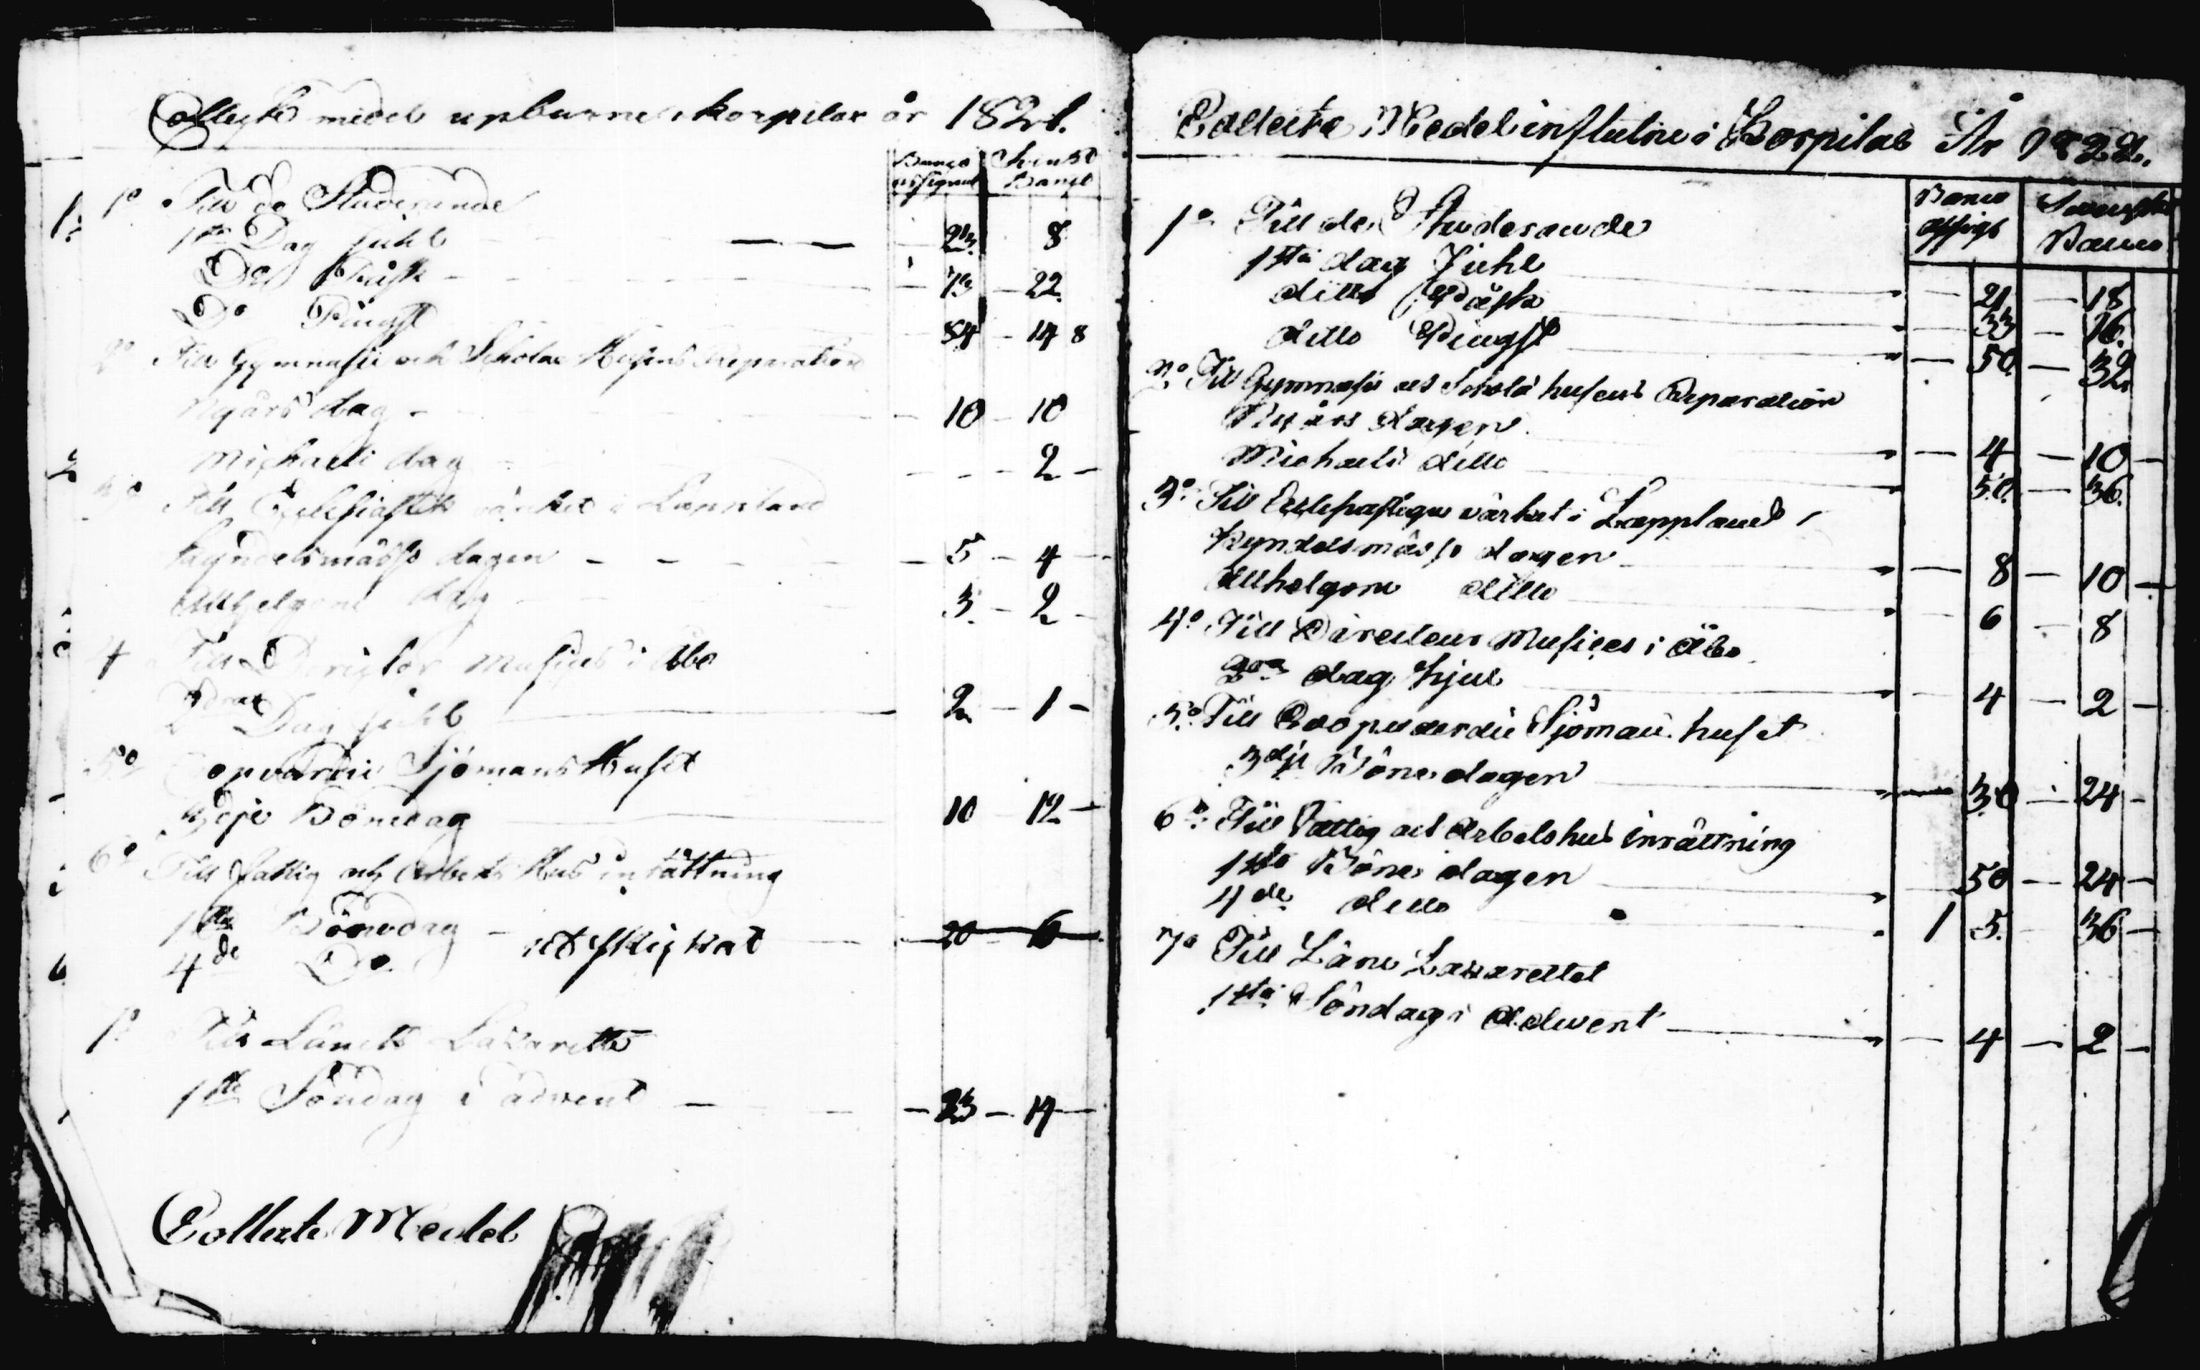 Collect medel upburne i Korpilax år 1821.
Banco assignat Svenskt Banco
1o Till de Studerande
1sta Dag Juhl — 23 8
Do Påsk — 73 — 22
Do Pingst 84 — 14 8
2o Till Gymnasii och Scholae Husens Reparation
Nyårs dag — 10 — 10
Michaeli dag — 2 —
3o Till Ecclesiastik värket i Lappland
Kyndelsmässo dagen — 5 — 4 —
Allhelgone dag 3 — 2 —
4 Till Director Musices i Åbo
2dra Dag Juhl 2 — 1 —
5o Copvardie Sjömans Huset
3dje Bönedag 10 12 —
6o Till fattig och Arbets Hus inrättning
1sta Bönedag — 20 — 6
4de Do.
7o Till Länets Lazarette
1sta Söndag i advent — 23 — 14 —
Collecte Medel
Collecte Medel influtne i Korpilax År 1822.
Banco assigt Svenskt Banco
1o Till de Studerande
1sta dag Juhl — 21 — 18
ditto Påsk — 33 — 16
ditto Pingst — 50 — 32
2o Till Gymnasii och Schola husens Reparation
Nyårs dagen — 4 — 10 —
Michaeli ditto 50 — 36
3o Till Ecclesiastique värket i Lappland
Kyndelsmässo dagen — 8 — 10 —
Allhelgone ditto 6 — 8
4o Till Directeur Musices i Åbo
2dra dag Hjul — 4 — 2 —
5o Till Coopvaerdie Sjöman huset
3dje Böne dagen — 30 — 24 —
6o Till Fattig och Arbetshus inrättning
1sta Böne dagen 50 — 24 —
4de ditto 1 5 36 —
7o Till Läne Lazarettet
1sta Söndag i Advent — 4 — 2 —